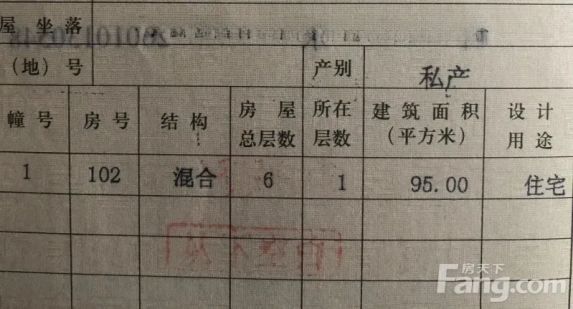 屋 坐 落
（地）号 产别 私产
幢 号 房 号 结 构 房 屋 总层数 所在 层数 建 筑 面 积 （平方米） 设 计 用 途
1 102 混合 6 1 95.00 住宅
房天下
Fang.com